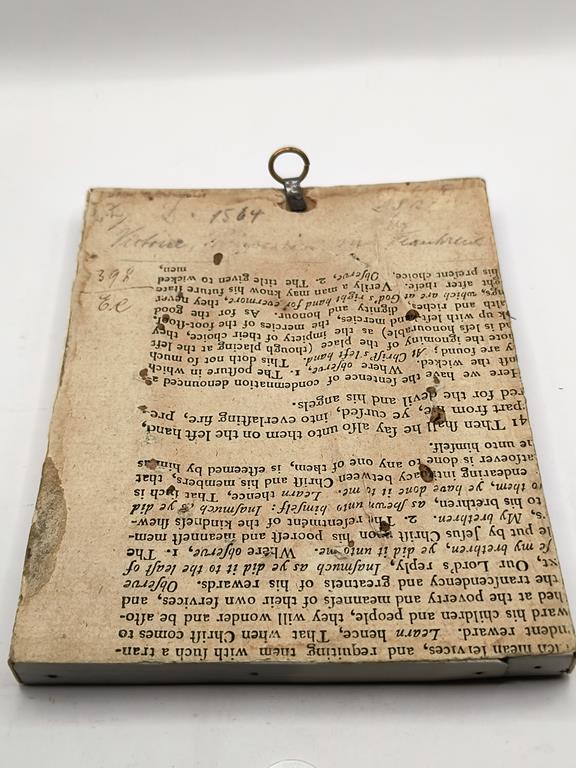 1564
Victoire,
398
Ee
ich mean ſervices, and requiting them with ſuch a tran-
undent reward. Learn hence, That when Chriſt comes to
ward his children and people, they will wonder and be aſto-
ſhed at the poverty and meanneſs of their own ſervices, and
the tranſcendency and greatneſs of his rewards. Obſerve
xt, Our Lord's reply, Inaſmuch as ye did it to the leaſt of
ſe my brethren, ye did it unto me. Where obſerve, 1. The
le put by Jeſus Chriſt upon his pooreſt and meaneſt mem-
s, My brethren. 2. The reſentment of the kindneſs ſhew-
to his brethren, as ſhewn unto himſelf: Inaſmuch as ye did
o them, ye have done it to me. Learn thence, That ſuch is
endearing intimacy between Chriſt and his members, that
atſoever is done to any one of them, is eſteemed by him as
ne unto himſelf.
41 Then ſhall he ſay alſo unto them on the left hand,
part from me, ye curſed, into everlaſting fire, pre-
red for the devil and his angels.
Here we have the ſentence of condemnation denounced a-
inſt the wicked. Where obſerve, 1. The poſture in which
y are found; At Chriſt's left hand. This doth not ſo much
ote the ignominy of the place (though placing at the left
d is leſs honourable) as the impiety of their choice, they
k up with left-hand mercies, the mercies of the foot-ſtool,
alth and riches, dignity and honour. As for the good
ngs, which are at God's right hand for evermore, they never
ght after theſe. Verily a man may know his future ſtate
his preſent choice. Obſerve, 2. The title given to wicked
men,